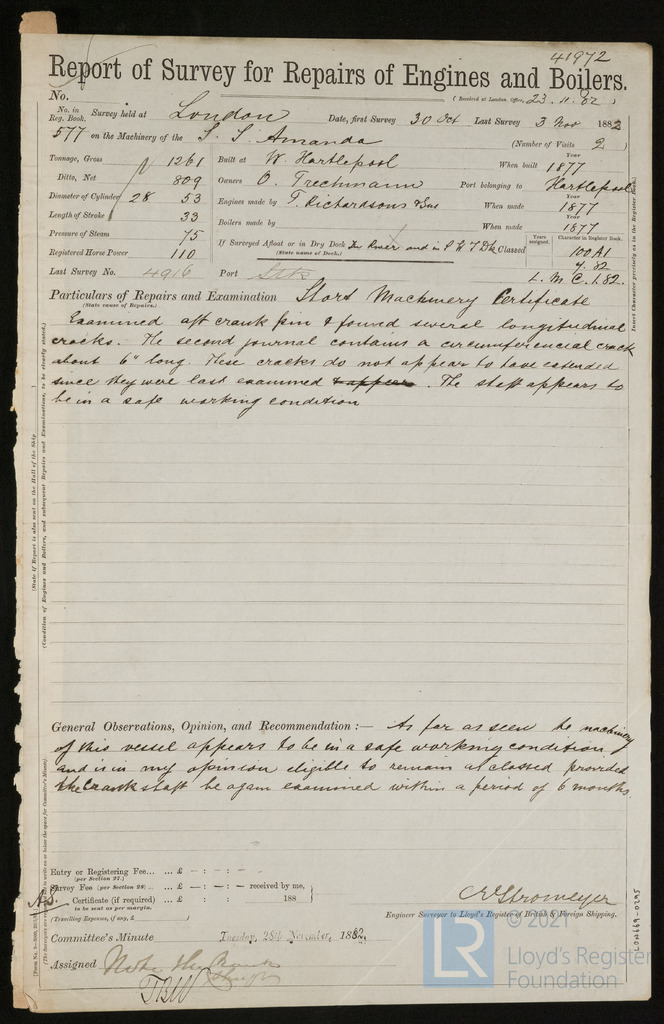 41972
Report of Survey for Repairs of Engines and Boilers.
No. (Received at London Office, 23.11.82)
No. in Reg. Book. Survey held at London Date, first Survey 30 Oct Last Survey 3 Nov 1882
577 on the Machinery of the S. S. Amanda (Number of Visits 2)
Tonnage, Gross 1261 Built at W. Hartlepool When built Year 1877
Ditto, Net 809 Owners O. Trechmann Port belonging to Hartlepool
Diameter of Cylinder 28 53 Engines made by T. Richardsons & Sons When made Year 1877
Length of Stroke 33 Boilers made by When made Year 1877
Pressure of Steam 75 If Surveyed Afloat or in Dry Dock In River and in Dk Classed Years assigned. Character in Register Book. 100 A1
(State name of Dock.)
Registered Horse Power 110 7.82
Last Survey No. 4916 Port L. M. C. 1.82.
Insert Character precisely as in the Register Book.
Particulars of Repairs and Examination Short Machinery Certificate
(State cause of Repairs.)
Examined aft crank pin & found several longitudinal
cracks. The second journal contains a circumferencial crack
about 6" long. These cracks do not appear to have extended
since they were last examined & appear. The shaft appears to
be in a safe working condition
(State if Report is also sent on the Hull of the Ship
(Condition of Engines and Boilers, and subsequent Repairs and Examinations, to be clearly stated.)
General Observations, Opinion, and Recommendation :— As far as seen the machinery
of this vessel appears to be in a safe working condition
and is in my opinion eligible to remain as classed provided
the Crank shaft be again examined within a period of 6 months.
Entry or Registering Fee... ... £ - : - : -
(per Section 27.)
Survey Fee (per Section 28) ... £ - : - : - received by me,
Certificate (if required) ... £ - : - : - 188
to be sent as per margin.
(Travelling Expenses, if any, £ )
C E Stromeyer
Engineer Surveyor to Lloyd's Register of British & Foreign Shipping.
Committee's Minute Tuesday, 28th November, 1882.
Assigned Note the Crank Shaft
LON669-0295
© 2021
LR
Lloyd's Register
Foundation